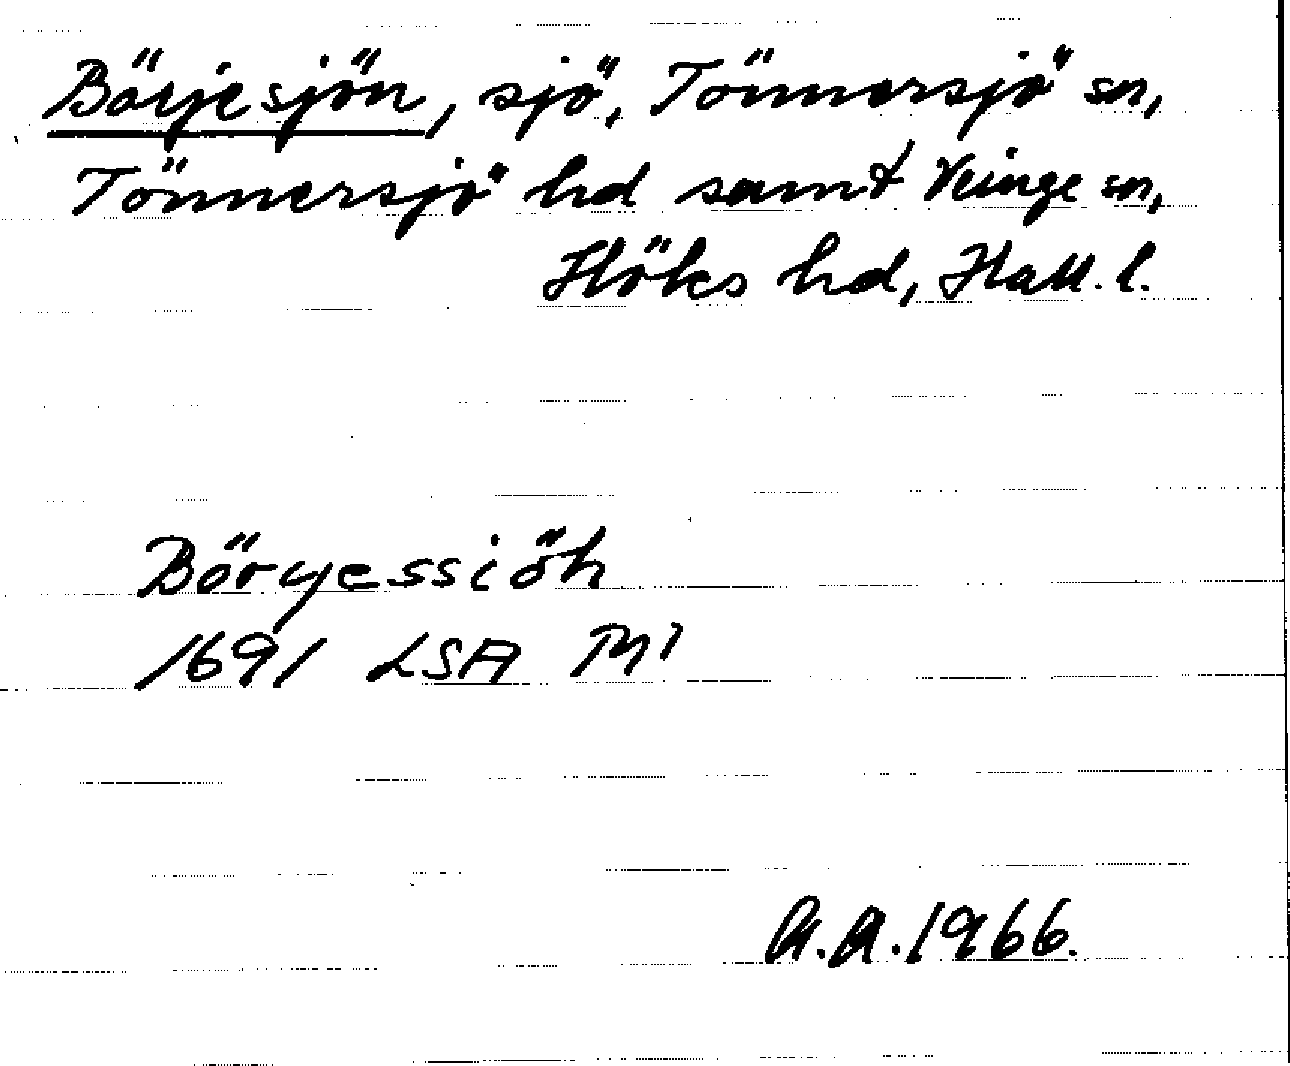 Börjesjön, sjö, Tönnersjö sn,
Tönnersjö hd samt Veinge sn,
Höks hd, Hall. l.
Böryessiöh
1691 LSA M1
A.A.1966.